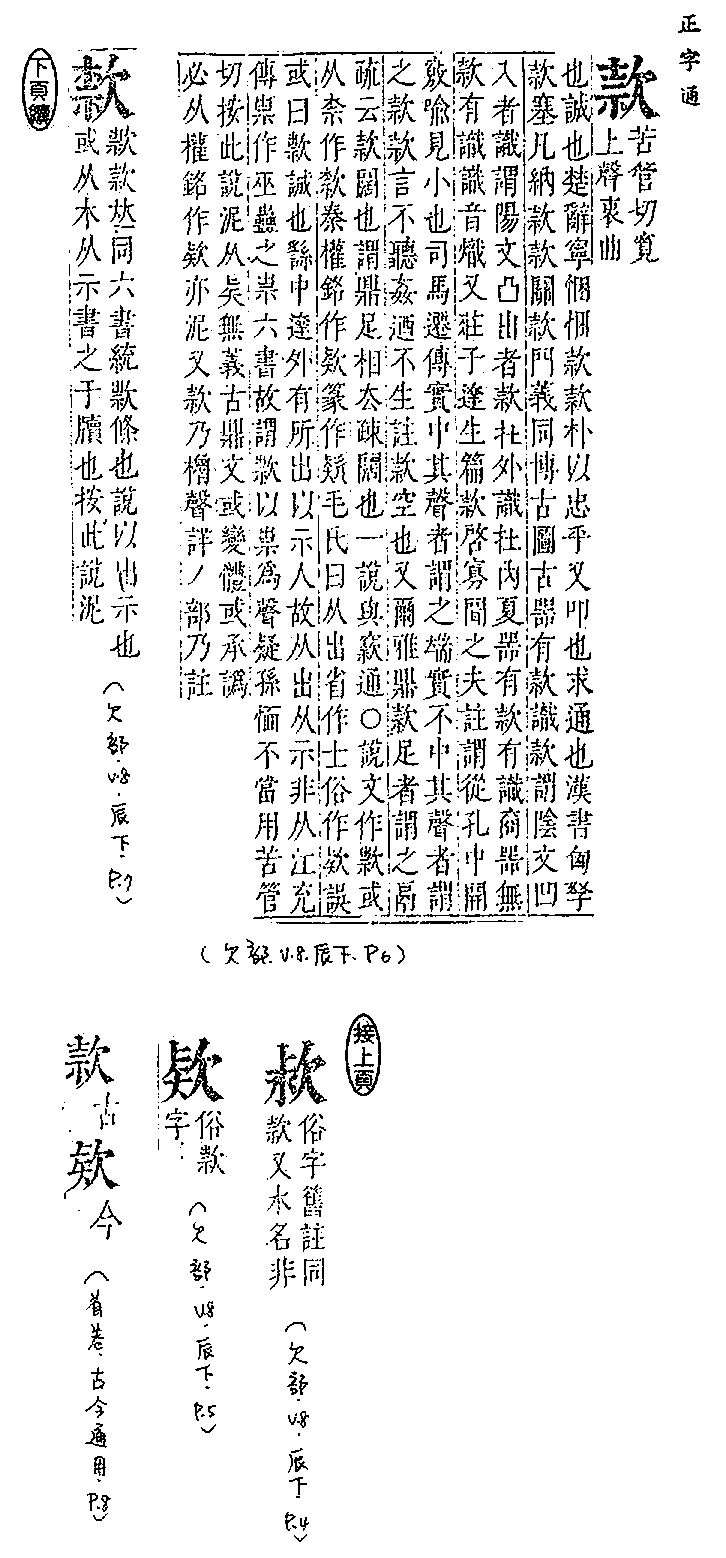 正字通
款
苦管切寬
上聲衷曲
也誠也楚辭寧悃悃款款朴以忠乎又叩也求通也漢書匈孥
款塞凡納款款關款門義同博古圖古器有款識款謂陰文凹
入者識謂陽文凸出者款在外識在內夏器有款有識商器無
款有識識音熾又莊子達生篇款啓寡聞之夫註謂從孔中開
竅喻見小也司馬遷傳實中其聲者謂之端實不中其聲者謂
之款款言不聽姦迺不生註款空也又爾雅鼎款足者謂之鬲
疏云款闊也謂鼎足相去疎闊也一說與窾通○說文作款或
从柰作㰲秦權銘作欵篆作毛氏曰从出省作士俗作欵誤
或曰款誠也繇中達外有所出以示人故从出从示非从江充
傳祟作巫蠱之祟六書故謂款以祟爲聲疑孫愐不當用苦管
切按此說泥从矣無義古鼎文或變體或承譌
必从權銘作欵亦泥又款乃櫓聲詳丿部乃註
款款𠀤同六書統款條也說以出示也
或从木从示書之于牘也按此說泥
(欠部.V.8.辰下.P.7)
下頁續
(欠部.V.8.辰下.P6)
接上頁
俗字舊註同
款又木名非
(欠部.V.8.辰下.P.4)
欵
俗款
字
(欠部.V8.辰下.P.5)
款 古
欵 今
(首卷.古今通用.P.8)